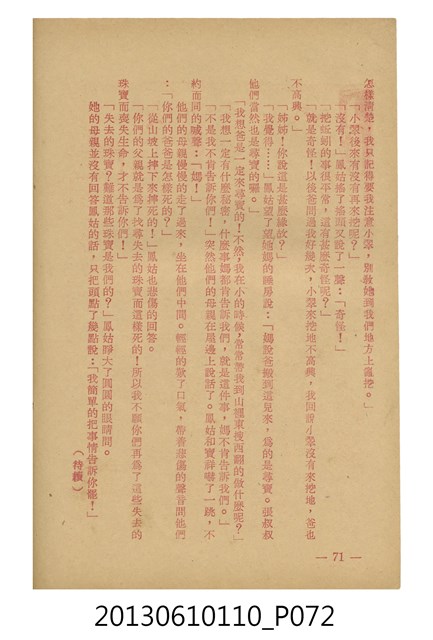 怎樣清楚，我只記得要我注意小翠，別敎她到我們地方上亂挖。」
「小翠後來有沒有再來挖呢？」
「沒有！」鳳姑搖了搖頭又說了一聲：「奇怪！」
「挖蚯蚓的事很平常，這有甚麼奇怪呢？」
「就是奇怪！以後爸問過我好幾次，小翠來挖地不高興，我回說小翠沒有來挖地，爸也
不高興。」
「姊姊！你說這是甚麼緣故？」
「我覺得……」鳳姑望了望她媽的睡房說：「媽說爸搬到這兒來，為的是尋寶。張叔叔
他們當然也是尋寶的囉。」
「我想爸是一定來尋寶的！不然，我在小的時候，常常帶我到山裡東搜西翻的做什麼呢？」
「我想一定有什麼秘密，什麼事媽都肯告訴我們，就是這件事，媽不肯告訴我們。」
「不是我不肯告訴你們！」突然他們的母親在屋邊上說話了。鳳姑和寶祥嚇了一跳，不
約而同的喊聲：「媽！」
他們的母親慢慢的走了過來，坐在他們中間。輕輕的歎了口氣，帶着悲傷的聲音問他們
：「你們的爸爸是怎樣死的？」
「從山坡上摔下來摔死的！」鳳姑也悲傷的回答。
「你們的父親就是為了找尋失去的珠寶而這樣死的！所以我不願你們再為了這些失去的
珠寶而喪失生命，才不告訴你們！」
「失去的珠寶？難道那些珠寶是我們的？」鳳姑睜大了圓圓的眼睛問。
她的母親並沒有回答鳳姑的話，只把頭點了幾點說：「我簡單的把事情告訴你罷！」
（待續）
— 71 —
20130610110_P072